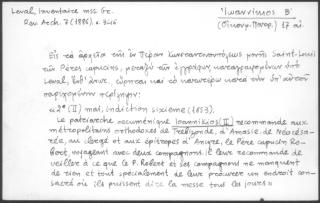 Laval, Inventaire mss Gr.
Rev Arch. 7 (1886), σ. 346
'Ἰωαννίκιος Β'
(Οἰκουμ. Πατρ.) 17 αἰ.
Εἰς τὰ ἀρχεῖα τῆς ἐν Πέραν Κωνσταντινουπόλεως μονῆς Saint-Louis
τῶν Pères capucins, μεταξὺ τῶν ἐγγράφων καταγραφομένων ὑπὸ
Laval, ἔνθ' ἄνωτ. εὕρηται καὶ τὸ κατωτέρω κατὰ τὴν ὑπ' αὐτοῦ
παρεχομένην περίληψιν:
«2e (II) mai, indiction sixième (1653).
Le patriarche oecuménique Ioannikios (II) recommande aux
métropolitains orthodoxes de Trébizonde, d'Amasie, de Néocésa-
rée, au clergé et aux épitropes d'Ancyre, le Père capucin Ro-
bert, voyageant avec deux compagnons. Il leur recommande de
veiller à ce que le P. Robert et ses compagnons ne manquent
de rien et tout spécialement de leur procurer un endroit con-
sacré où ils puissent dire la messe tous les jours»